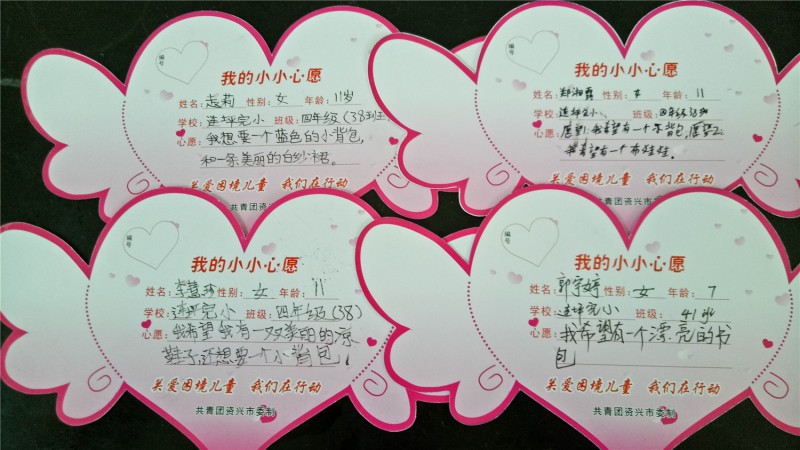 编号
我的小小心愿
姓名：志莉 性别：女 年龄：11岁
学校：连坪完小 班级：四年级（38班）
心愿：我想要一个蓝色的小背包，
和一条美丽的白纱裙。
关爱困境儿童 我们在行动
共青团资兴市
编号
我的小小心愿
姓名：郑湘露 性别：女 年龄：11
学校：连坪完小 班级：四年级38班
心愿：愿望1：我希望有一个书包，愿望2：
我希望有一个布娃娃。
关爱困境儿童 我们在行动
共青团资兴市委制
编号
我的小小心愿
姓名：李慧 性别：女 年龄：11
学校：连坪完小 班级：四年级（38）
心愿：我希望我有一双美丽的凉
鞋子，还想要一个小背包！
关爱困境儿童 我们在行动
共青团资兴市委制
编号
我的小小心愿
姓名：郭宇婷 性别：女 年龄：7
学校：连坪完小 班级：41班
心愿：我希望有一个漂亮的书
包
关爱困境儿童 我们在行动
共青团资兴市委制